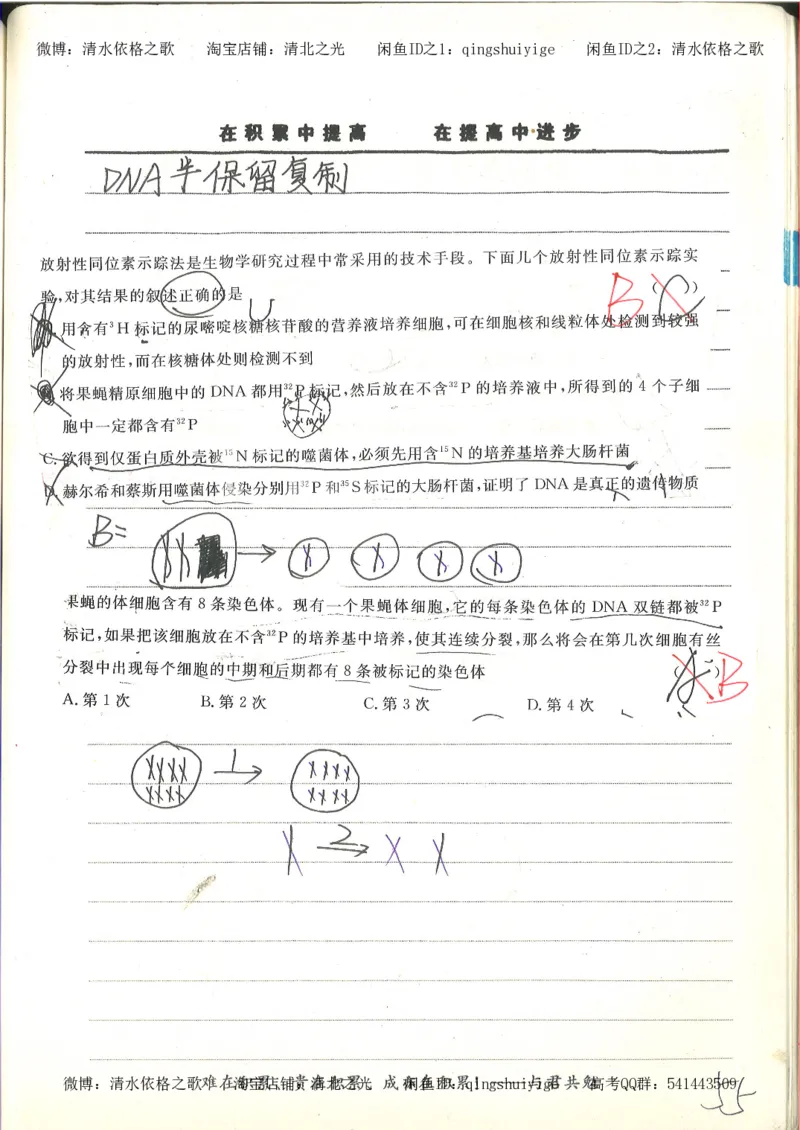 微博：清水依格之歌 淘宝店铺：清北之光 闲鱼ID之1：qingshuiyige 闲鱼ID之2：清水依格之歌
在积累中提高 在提高中进步
DNA半保留复制
放射性同位素示踪法是生物学研究过程中常采用的技术手段。下面几个放射性同位素示踪实
验,对其结果的叙述正确的是 ( )
B
用含有³H标记的尿嘧啶核糖核苷酸的营养液培养细胞,可在细胞核和线粒体处检测到较强
的放射性,而在核糖体处则检测不到
将果蝇精原细胞中的DNA都用³²P标记,然后放在不含³²P的培养液中,所得到的4个子细
胞中一定都含有³²P
C.欲得到仅蛋白质外壳被¹⁵N标记的噬菌体,必须先用含¹⁵N的培养基培养大肠杆菌
D.赫尔希和蔡斯用噬菌体侵染分别用³²P和³⁵S标记的大肠杆菌,证明了DNA是真正的遗传物质
B=
果蝇的体细胞含有8条染色体。现有一个果蝇体细胞,它的每条染色体的DNA双链都被³²P
标记,如果把该细胞放在不含³²P的培养基中培养,使其连续分裂,那么将会在第几次细胞有丝
分裂中出现每个细胞的中期和后期都有8条被标记的染色体 ( )
B
A.第1次 B.第2次 C.第3次 D.第4次
1
2
微博：清水依格之歌 淘宝店铺：清北之光 闲鱼ID：qingshuiyige 高考QQ群：541443509
与君共勉
55